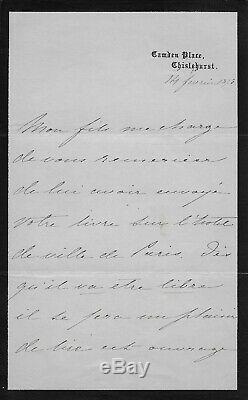 Camden Place,
Chislehurst.
24 février
Mon fils me charge
de vous remercier
de lui avoir envoyé
votre livre sur l'hotel
de ville de Paris. Dès
qu'il va etre libre
il se fera un plaisir
de lire cet ouvrage
bidStart